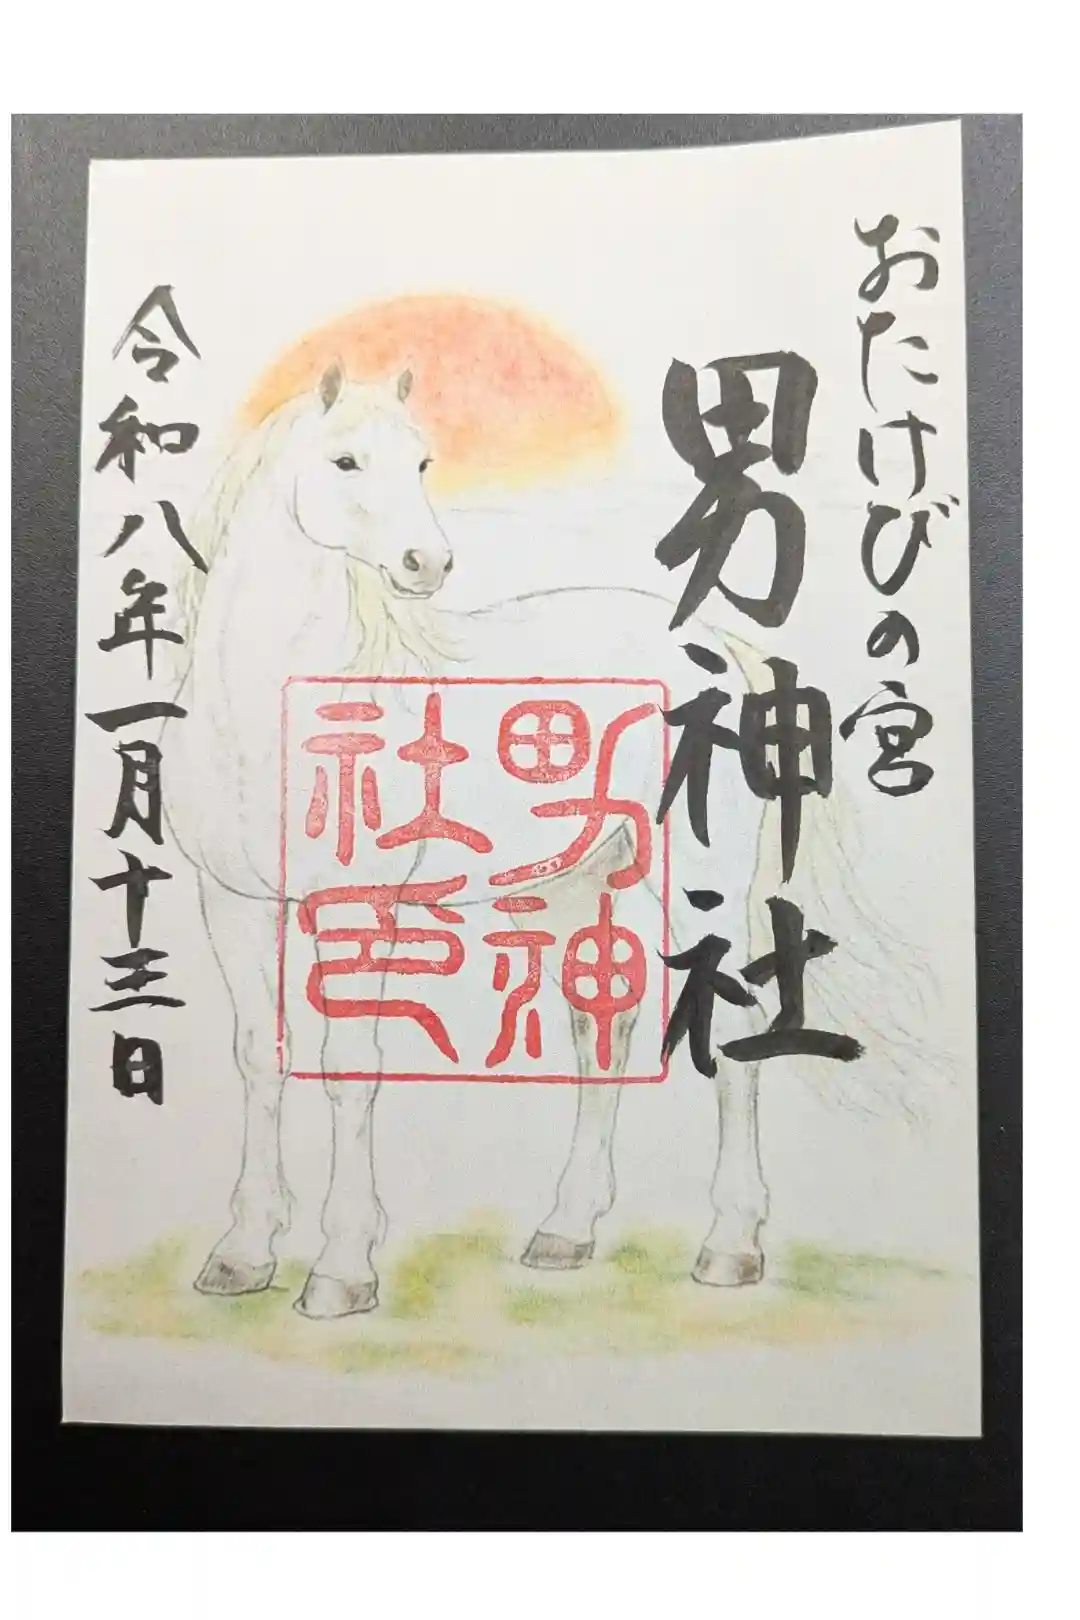 おたけびの宮
男神社
男神
社印
令和八年一月十三日